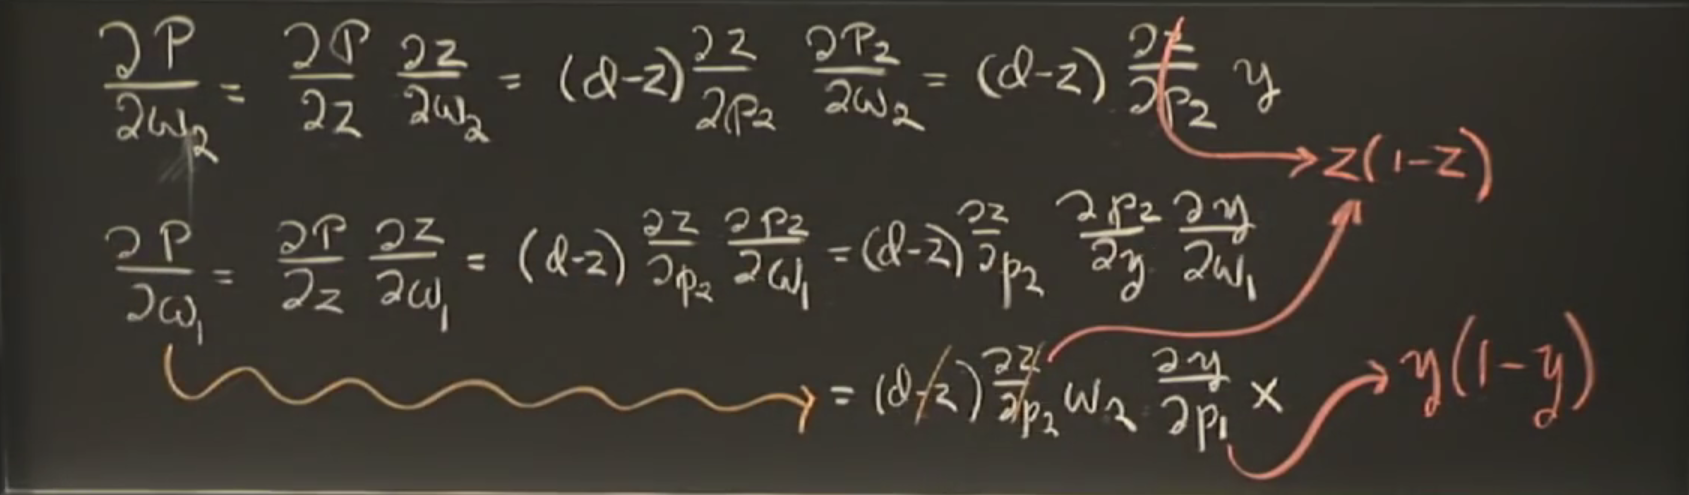 ∂P/∂w₂ = ∂P/∂z ∂z/∂w₂ = (d-z) ∂z/∂p₂ ∂P₂/∂w₂ = (d-z) ∂z/∂p₂ y
z(1-z)
∂P/∂w₁ = ∂P/∂z ∂z/∂w₁ = (d-z) ∂z/∂p₂ ∂p₂/∂w₁ = (d-z) ∂z/∂p₂ ∂p₂/∂y ∂y/∂w₁
= (d-z) ∂z/∂p₂ w₂ ∂y/∂p₁ x
y(1-y)